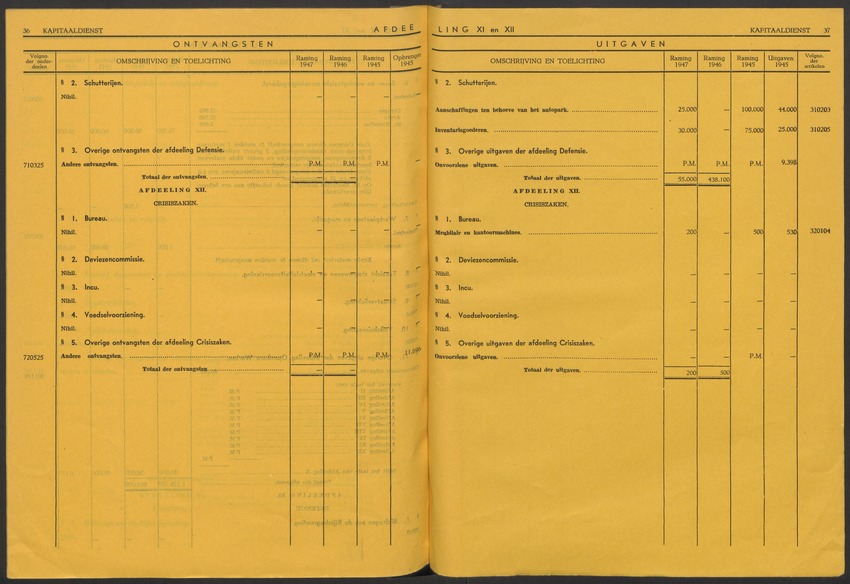 36 KAPITAALDIENST AFDEE
ONTVANGSTEN
Volgno. der onder-deelen OMSCHRIJVING EN TOELICHTING Raming 1947 Raming 1946 Raming 1945 Opbrengst 1945
§ 2. Schutterijen.
Nihil. — — — —
§ 3. Overige ontvangsten der afdeeling Defensie.
710325 Andere ontvangsten. P.M. P.M. P.M. —
Totaal der ontvangsten — —
AFDEELING XII.
CRISISZAKEN.
§ 1. Bureau.
Nihil. — — — —
§ 2. Deviezencommissie.
Nihil. — — — —
§ 3. Incu.
Nihil. — — — —
§ 4. Voedselvoorziening.
Nihil. — — — —
§ 5. Overige ontvangsten der afdeeling Crisiszaken.
720525 Andere ontvangsten. P.M. P.M. P.M.
Totaal der ontvangsten — —
LING XI en XII KAPITAALDIENST 37
UITGAVEN
OMSCHRIJVING EN TOELICHTING Raming 1947 Raming 1946 Raming 1945 Uitgaven 1945 Volgno. der artikelen
§ 2. Schutterijen.
Aanschaffingen ten behoeve van het autopark. 25.000 — 100.000 44.000 310203
Inventarisgoederen. 30.000 — 75.000 25.000 310205
§ 3. Overige uitgaven der afdeeling Defensie.
Onvoorziene uitgaven. P.M. P.M. P.M. 9.398
Totaal der uitgaven. 55.000 438.100
AFDEELING XII.
CRISISZAKEN.
§ 1. Bureau.
Meubilair en kantoormachines. 200 — 500 530 320104
§ 2. Deviezencommissie.
Nihil. — — — —
§ 3. Incu.
Nihil. — — — —
§ 4. Voedselvoorziening.
Nihil. — — — —
§ 5. Overige uitgaven der afdeeling Crisiszaken.
Onvoorziene uitgaven. — — P.M. —
Totaal der uitgaven. 200 500